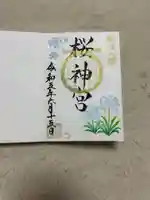 桜神宮
令和五年六月十五日